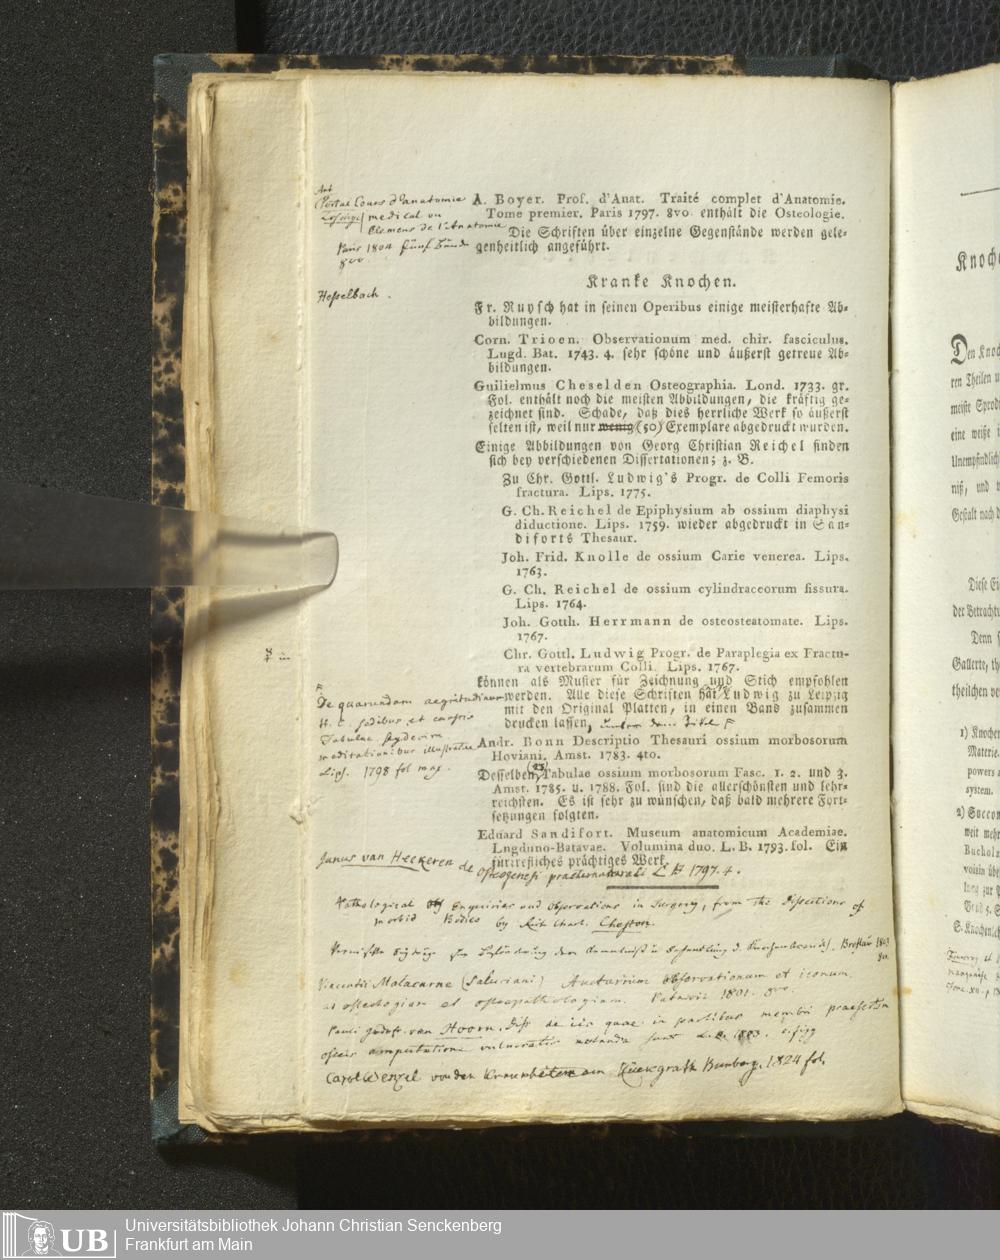 Ant
Portal Cours d'anatomie
medical ou
Elemens de l'Anatomie
Paris 1804 fünf Bände
8vo.
A. Boyer. Prof. d'Anat. Traité complet d'Anatomie.
Tome premier. Paris 1797. 8vo enthält die Osteologie.
Die Schriften über einzelne Gegenstände werden gele-
genheitlich angeführt.
Kranke Knochen.
Hesselbach.
Fr. Ruysch hat in seinen Operibus einige meisterhafte Ab-
bildungen.
Corn. Trioen. Observationum med. chir. fasciculus.
Lugd. Bat. 1743. 4. sehr schöne und äußerst getreue Ab-
bildungen.
Guilielmus Cheselden Osteographia. Lond. 1733. gr.
Fol. enthält noch die meisten Abbildungen, die kräftig ge-
zeichnet sind. Schade, daß dies herrliche Werk so äußerst
selten ist, weil nur wenig (50) Exemplare abgedruckt wurden.
Einige Abbildungen von Georg Christian Reichel finden
sich bey verschiedenen Dissertationen; z. B.
Zu Chr. Gottl. Ludwig's Progr. de Colli Femoris
fractura. Lips. 1775.
G. Ch. Reichel de Epiphysium ab ossium diaphysi
diductione. Lips. 1759. wieder abgedruckt in San-
diforts Thesaur.
Joh. Frid. Knolle de ossium Carie venerea. Lips.
1763.
G. Ch. Reichel de ossium cylindraceorum fissura.
Lips. 1764.
Joh. Gotth. Herrmann de osteosteatomate. Lips.
1767.
Chr. Gottl. Ludwig Progr. de Paraplegia ex Fractu-
ra vertebrarum Colli. Lips. 1767.
können als Muster für Zeichnung und Stich empfohlen
werden. Alle diese Schriften hat Ludwig zu Leipzig
mit den Original Platten, in einen Band zusammen
drucken lassen, unter dem Titel F
F
De quarundam aegritudinum
H. c. sedibus et causis
Tabulae sedecim
meditationibus illustratae
Lips. 1798 fol maj.
Andr. Bonn Descriptio Thesauri ossium morbosorum
Hoviani. Amst. 1783. 4to.
Desselben (23) Tabulae ossium morbosorum Fasc. 1. 2. und 3.
Amst. 1785. u. 1788. Fol. sind die allerschönsten und lehr-
reichsten. Es ist sehr zu wünschen, daß bald mehrere Fort-
setzungen folgten.
Eduard Sandifort. Museum anatomicum Academiae.
Lngduno-Batavae. Volumina duo. L. B. 1793. fol. Ein
fürtrefliches prächtiges Werk.
Janus van Heekeren de osteogenesi praeternaturali L B 1797. 4.
Pathological Enquiries and Observations in Surgery, from the Dissections of
morbid Bodies by Rich Charl. Cheston.
Breslau 1803
8o.
Vincentii Malacarne (Saluciani) Auctarium observationum et iconum
ad osteologiam et osteopathologiam. Patavii 1801. 8vo.
Pauli van Hoorn. Diss de iis quae in partibus membri praesertim
osseis amputatione vulneratis notanda sunt L. B. 1803. c. figg
Carol Wenzel von den Krankheiten am Rückgrath Bamberg. 1824 fol.
Knoche
Den Knoch
ren Theilen u
meiste Sprodi
eine weiße i
Unempfindlich
niß, und w
Gestalt nach d
Diese Ei
der Betracht
Denn s
Gallerte, th
theilchen ve
1) Knoche
Materie.
powers a
system.
2) Succow
weit mehr
Bucholz
voisin übe
lung zur P
Grad 5. S
S. Knochenleh
UB
Universitätsbibliothek Johann Christian Senckenberg
Frankfurt am Main